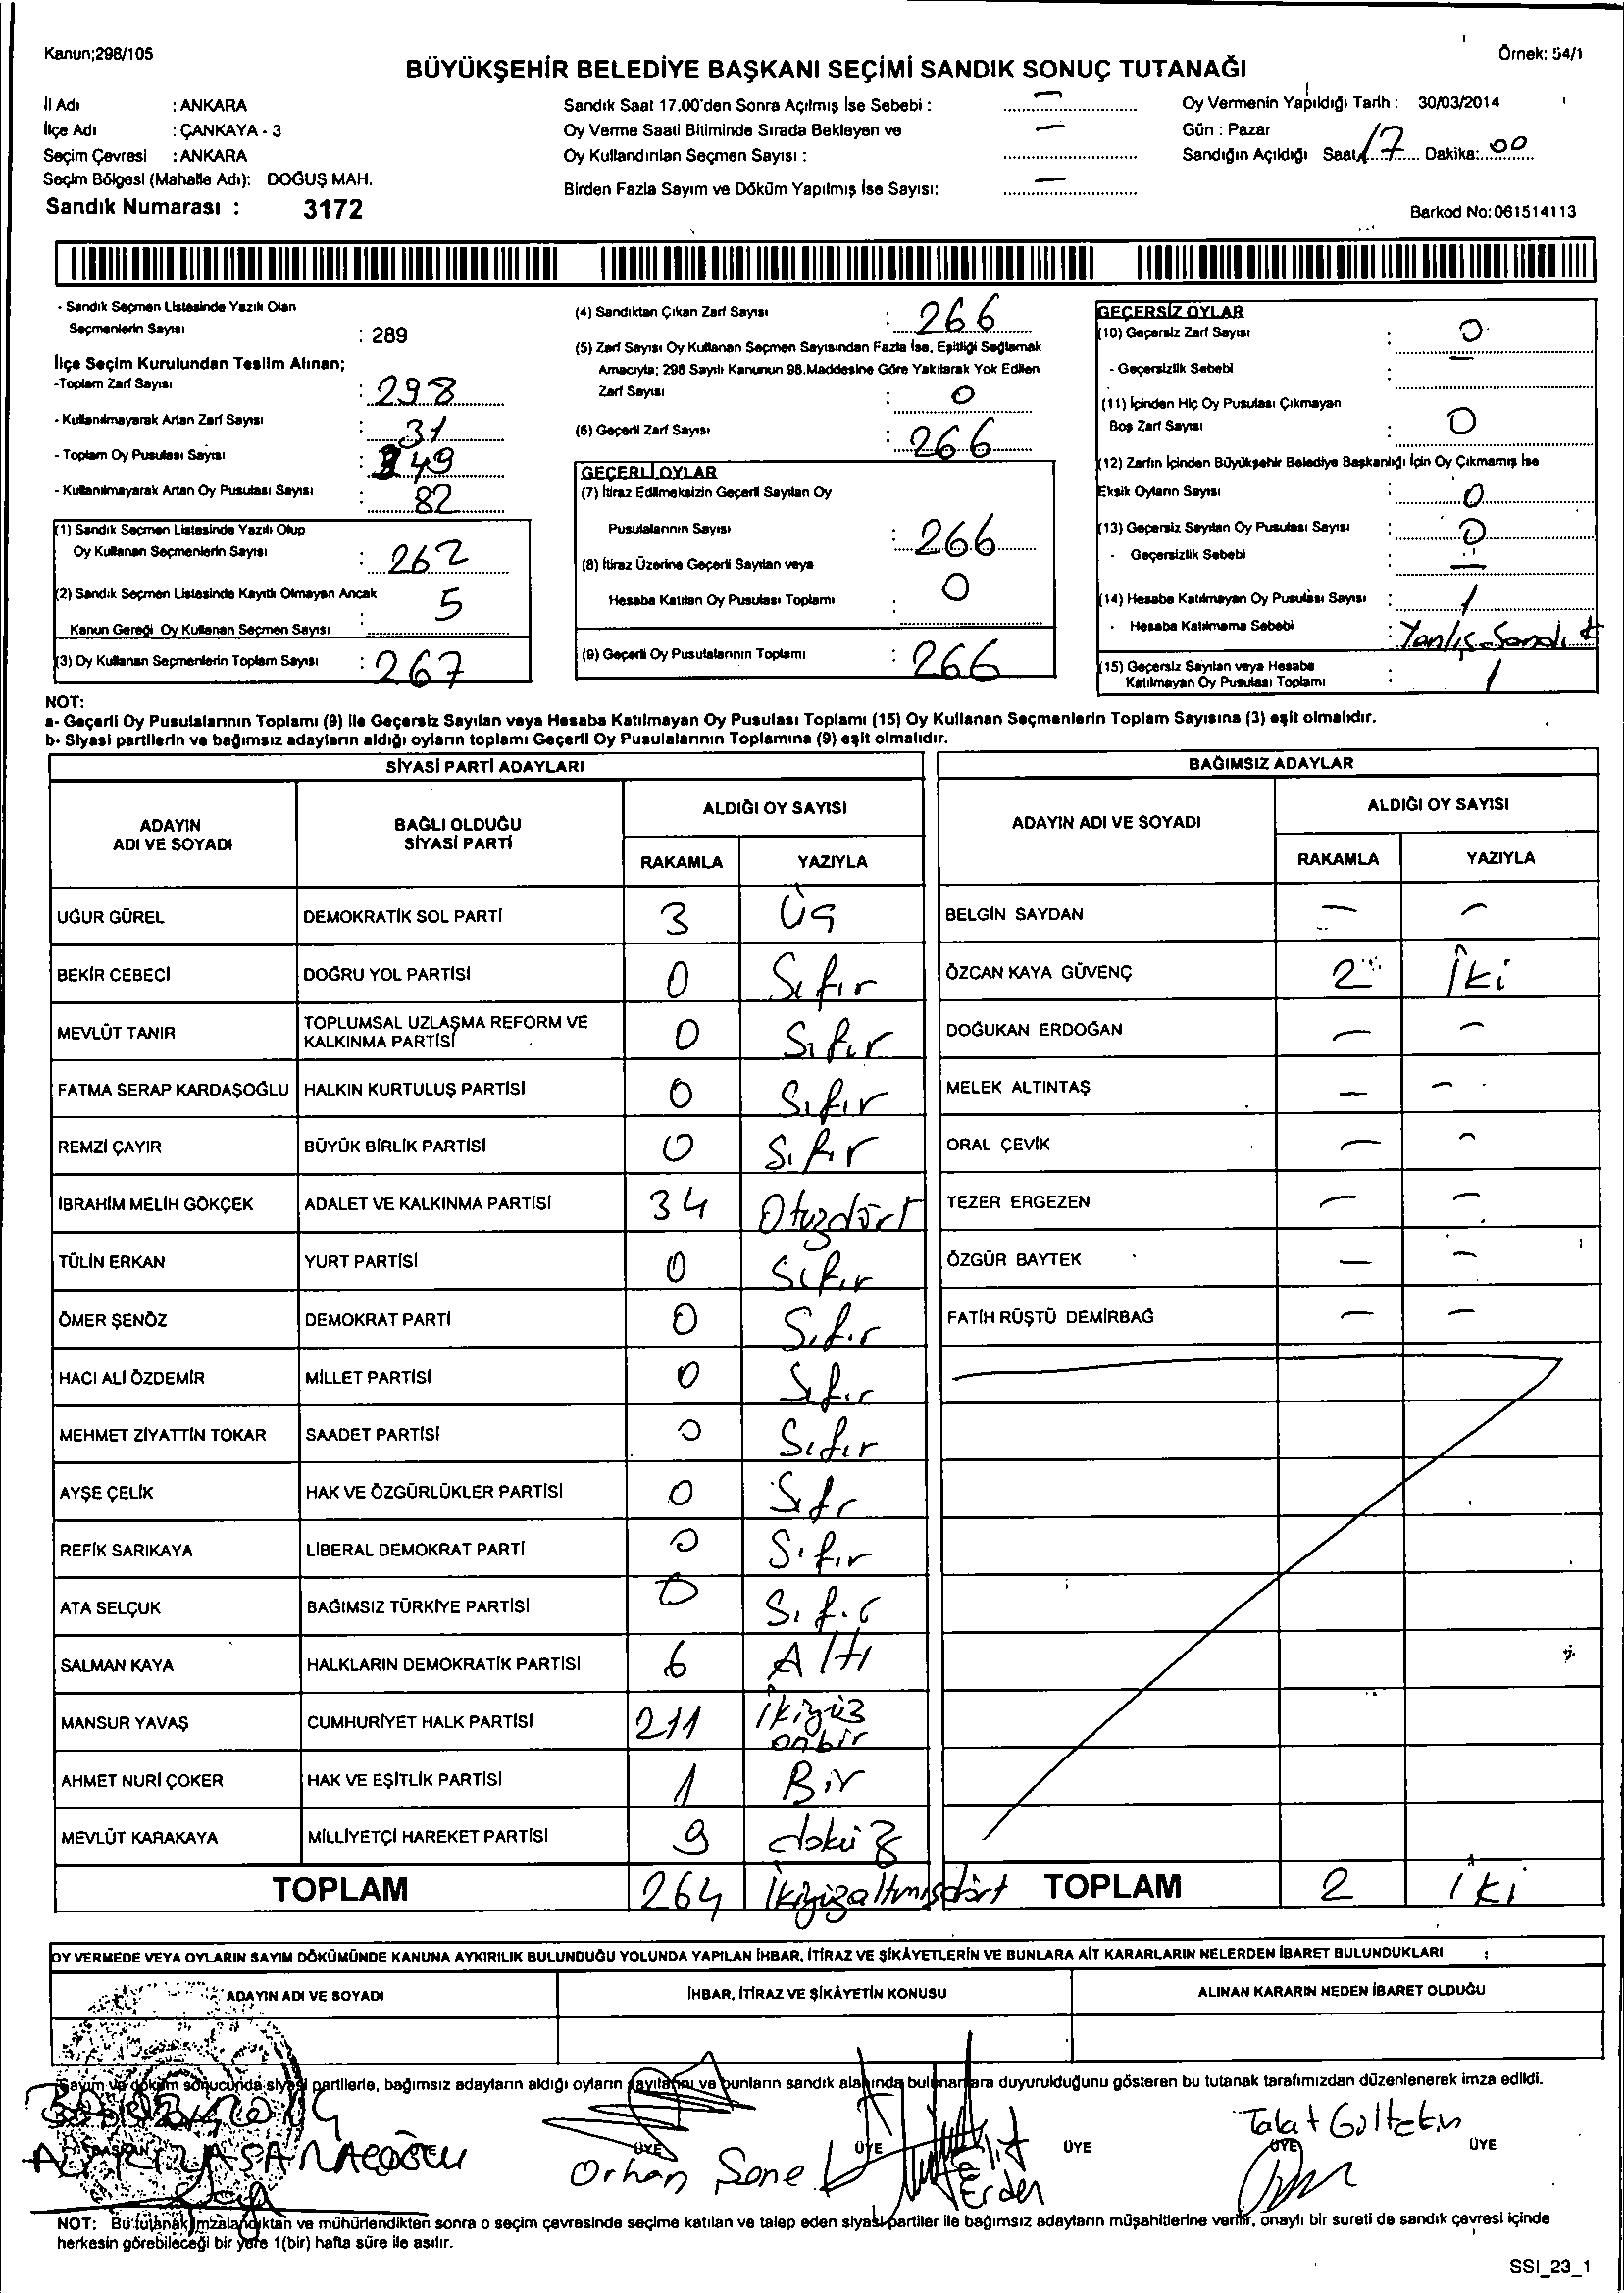 Kanun;298/105
Örnek: 54/1
BÜYÜKŞEHİR BELEDİYE BAŞKANI SEÇİMİ SANDIK SONUÇ TUTANAĞI
İl Adı : ANKARA
İlçe Adı : ÇANKAYA - 3
Seçim Çevresi : ANKARA
Seçim Bölgesi (Mahalle Adı): DOĞUŞ MAH.
Sandık Numarası : 3172
Sandık Saat 17.00'den Sonra Açılmış İse Sebebi : —
Oy Verme Saati Bitiminde Sırada Bekleyen ve —
Oy Kullandırılan Seçmen Sayısı :
Birden Fazla Sayım ve Döküm Yapılmış İse Sayısı: —
Oy Vermenin Yapıldığı Tarih : 30/03/2014
Gün : Pazar
Sandığın Açıldığı Saat 17 Dakika: 00
Barkod No:061514113
- Sandık Seçmen Listesinde Yazılı Olan
Seçmenlerin Sayısı : 289
İlçe Seçim Kurulundan Teslim Alınan;
-Toplam Zarf Sayısı : 298
- Kullanılmayarak Artan Zarf Sayısı : 31
- Toplam Oy Pusulası Sayısı : 349
- Kullanılmayarak Artan Oy Pusulası Sayısı : 82
(1) Sandık Seçmen Listesinde Yazılı Olup
Oy Kullanan Seçmenlerin Sayısı : 262
(2) Sandık Seçmen Listesinde Kayıtlı Olmayan Ancak
Kanun Gereği Oy Kullanan Seçmen Sayısı : 5
(3) Oy Kullanan Seçmenlerin Toplam Sayısı : 267
(4) Sandıktan Çıkan Zarf Sayısı : 266
(5) Zarf Sayısı Oy Kullanan Seçmen Sayısından Fazla İse, Eşitliği Sağlamak
Amacıyla; 298 Sayılı Kanunun 98.Maddesine Göre Yakılarak Yok Edilen
Zarf Sayısı : 0
(6) Geçerli Zarf Sayısı : 266
GEÇERLİ OYLAR
(7) İtiraz Edilmeksizin Geçerli Sayılan Oy
Pusulalarının Sayısı : 266
(8) İtiraz Üzerine Geçerli Sayılan veya
Hesaba Katılan Oy Pusulası Toplamı : 0
(9) Geçerli Oy Pusulalarının Toplamı : 266
GEÇERSİZ OYLAR
(10) Geçersiz Zarf Sayısı : 0
- Geçersizlik Sebebi : —
(11) İçinden Hiç Oy Pusulası Çıkmayan
Boş Zarf Sayısı : 0
(12) Zarfın İçinden Büyükşehir Belediye Başkanlığı İçin Oy Çıkmamış İse
Eksik Oyların Sayısı : 0
(13) Geçersiz Sayılan Oy Pusulası Sayısı : 0
- Geçersizlik Sebebi : —
(14) Hesaba Katılmayan Oy Pusulası Sayısı : 1
- Hesaba Katılmama Sebebi : Yanlış Sandık
(15) Geçersiz Sayılan veya Hesaba
Katılmayan Oy Pusulası Toplamı : 1
NOT:
a- Geçerli Oy Pusulalarının Toplamı (9) ile Geçersiz Sayılan veya Hesaba Katılmayan Oy Pusulası Toplamı (15) Oy Kullanan Seçmenlerin Toplam Sayısına (3) eşit olmalıdır.
b- Siyasi partilerin ve bağımsız adayların aldığı oyların toplamı Geçerli Oy Pusulalarının Toplamına (9) eşit olmalıdır.
SİYASİ PARTİ ADAYLARI
ADAYIN ADI VE SOYADI
BAĞLI OLDUĞU SİYASİ PARTİ
ALDIĞI OY SAYISI
RAKAMLA YAZIYLA
UĞUR GÜREL DEMOKRATİK SOL PARTİ 3 Üç
BEKİR CEBECİ DOĞRU YOL PARTİSİ 0 Sıfır
MEVLÜT TANIR TOPLUMSAL UZLAŞMA REFORM VE KALKINMA PARTİSİ 0 Sıfır
FATMA SERAP KARDAŞOĞLU HALKIN KURTULUŞ PARTİSİ 0 Sıfır
REMZİ ÇAYIR BÜYÜK BİRLİK PARTİSİ 0 Sıfır
İBRAHİM MELİH GÖKÇEK ADALET VE KALKINMA PARTİSİ 34 Otuzdört
TÜLİN ERKAN YURT PARTİSİ 0 Sıfır
ÖMER ŞENÖZ DEMOKRAT PARTİ 0 Sıfır
HACI ALİ ÖZDEMİR MİLLET PARTİSİ 0 Sıfır
MEHMET ZİYATTİN TOKAR SAADET PARTİSİ 0 Sıfır
AYŞE ÇELİK HAK VE ÖZGÜRLÜKLER PARTİSİ 0 Sıfr
REFİK SARIKAYA LİBERAL DEMOKRAT PARTİ 0 Sıfır
ATA SELÇUK BAĞIMSIZ TÜRKİYE PARTİSİ 0 Sıfır
SALMAN KAYA HALKLARIN DEMOKRATİK PARTİSİ 6 Altı
MANSUR YAVAŞ CUMHURİYET HALK PARTİSİ 211 İkiyüz onbir
AHMET NURİ ÇOKER HAK VE EŞİTLİK PARTİSİ 1 Bir
MEVLÜT KARAKAYA MİLLİYETÇİ HAREKET PARTİSİ 9 dokuz
TOPLAM 264 İkiyüzaltmışdört
BAĞIMSIZ ADAYLAR
ADAYIN ADI VE SOYADI
ALDIĞI OY SAYISI
RAKAMLA YAZIYLA
BELGİN SAYDAN — —
ÖZCAN KAYA GÜVENÇ 2 İki
DOĞUKAN ERDOĞAN — —
MELEK ALTINTAŞ — —
ORAL ÇEVİK — —
TEZER ERGEZEN — —
ÖZGÜR BAYTEK — —
FATİH RÜŞTÜ DEMİRBAĞ — —
TOPLAM 2 iki
OY VERMEDE VEYA OYLARIN SAYIM DÖKÜMÜNDE KANUNA AYKIRILIK BULUNDUĞU YOLUNDA YAPILAN İHBAR, İTİRAZ VE ŞİKÂYETLERİN VE BUNLARA AİT KARARLARIN NELERDEN İBARET BULUNDUKLARI
ADAYIN ADI VE SOYADI
İHBAR, İTİRAZ VE ŞİKÂYETİN KONUSU
ALINAN KARARIN NEDEN İBARET OLDUĞU
Sayım ve döküm sonucunda siyasi partilerle, bağımsız adayların aldığı oyların sayılarını ve bunların sandık alanında bulunanlara duyurulduğunu gösteren bu tutanak tarafımızdan düzenlenerek imza edildi.
BAŞKAN
ÜYE ÜYE ÜYE ÜYE ÜYE
Orhan Şene
Erden
Talat Gültekin
NOT: Bu tutanak imzalandıktan ve mühürlendikten sonra o seçim çevresinde seçime katılan ve talep eden siyasi partiler ile bağımsız adayların müşahitlerine verilir, onaylı bir sureti de sandık çevresi içinde
herkesin görebileceği bir yere 1(bir) hafta süre ile asılır.
SSI_23_1